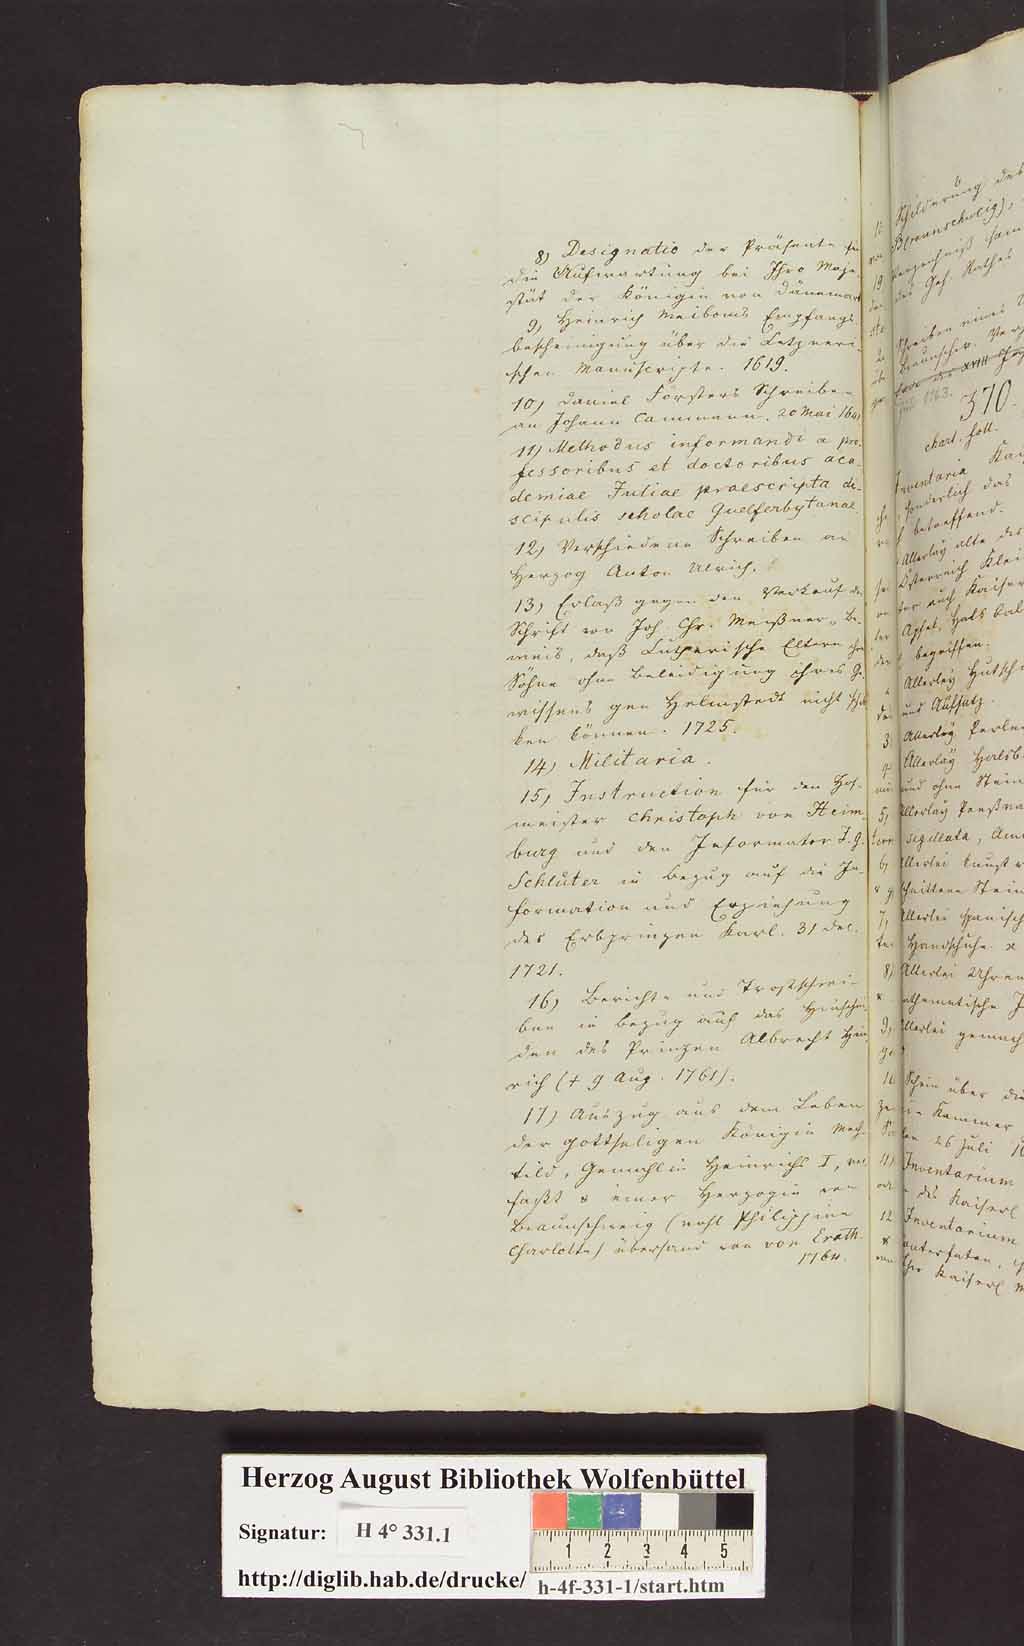 8) Designatio der Präsente für
die Aufwartung bei Ihro Maje-
stät der Königin von Dänemark
9) Heinrich Meiboms Empfangs-
bescheinigung über die Letzneri-
schen Manuscripte. 1619.
10) Daniel Försters Schreiben
an Johann Cammann. 20 Mai
11) Methodus informandi a pro-
fessoribus et doctoribus aca-
demiae Juliae praescripta di-
scipulis scholae Guelferbytanae.
12) Verschiedene Schreiben an
Herzog Anton Ulrich.
13) Erlaß gegen den Verkauf der
Schrift von Joh. Chr. Meißner, Be-
weis, daß Lutherische Eltern ihre
Söhne ohne Beleidigung ihres Ge-
wissens gen Helmstedt nicht schi-
ken können. 1725.
14) Militaria.
15) Instruction für den Hof-
meister Christoph von Heim-
burg und den Informator J. G.
Schlüter in Bezug auf die In-
formation und Erziehung
des Erbprinzen Karl. 31 Dec.
1721.
16) Berichte und Trostschrei-
ben in Bezug auf das Hinschei-
den des Prinzen Albrecht Hein-
rich († 9 Aug. 1761).
17) Auszug aus dem Leben
der gottseligen Königin Mech-
tild, Gemahlin Heinrichs I, ver-
faßt & einer Herzogin von
Braunschweig (wohl Philippine
Charlotte) übersand von von Erath
1764.
Schilderung des
Braunschweig),
Verzeichniß
des Geh. Rathes
Schreiben eines
370.
chart. foll.
Inventaria
sonderlich das
betreffend.
Allerlay alte
Österreich
auch Kaiser
begriffen.
Allerley
und Aufsatz.
Allerley Perlen
Allerlay Halsb
und ohne Stein
Allerlay
sigillata,
Allerlei Kunst
schnittene Stein
Allerlei spanisch
Handschuhe
Allerlei Uhren
athematische
Allerlei gemach
Schein über die
Kammer
26 Juli
Inventarium
des Kaiserl
Inventarium
Kaiserl
Herzog August Bibliothek Wolfenbüttel
Signatur: H 4° 331.1
1 2 3 4 5
http://diglib.hab.de/drucke/ h-4f-331-1/start.htm